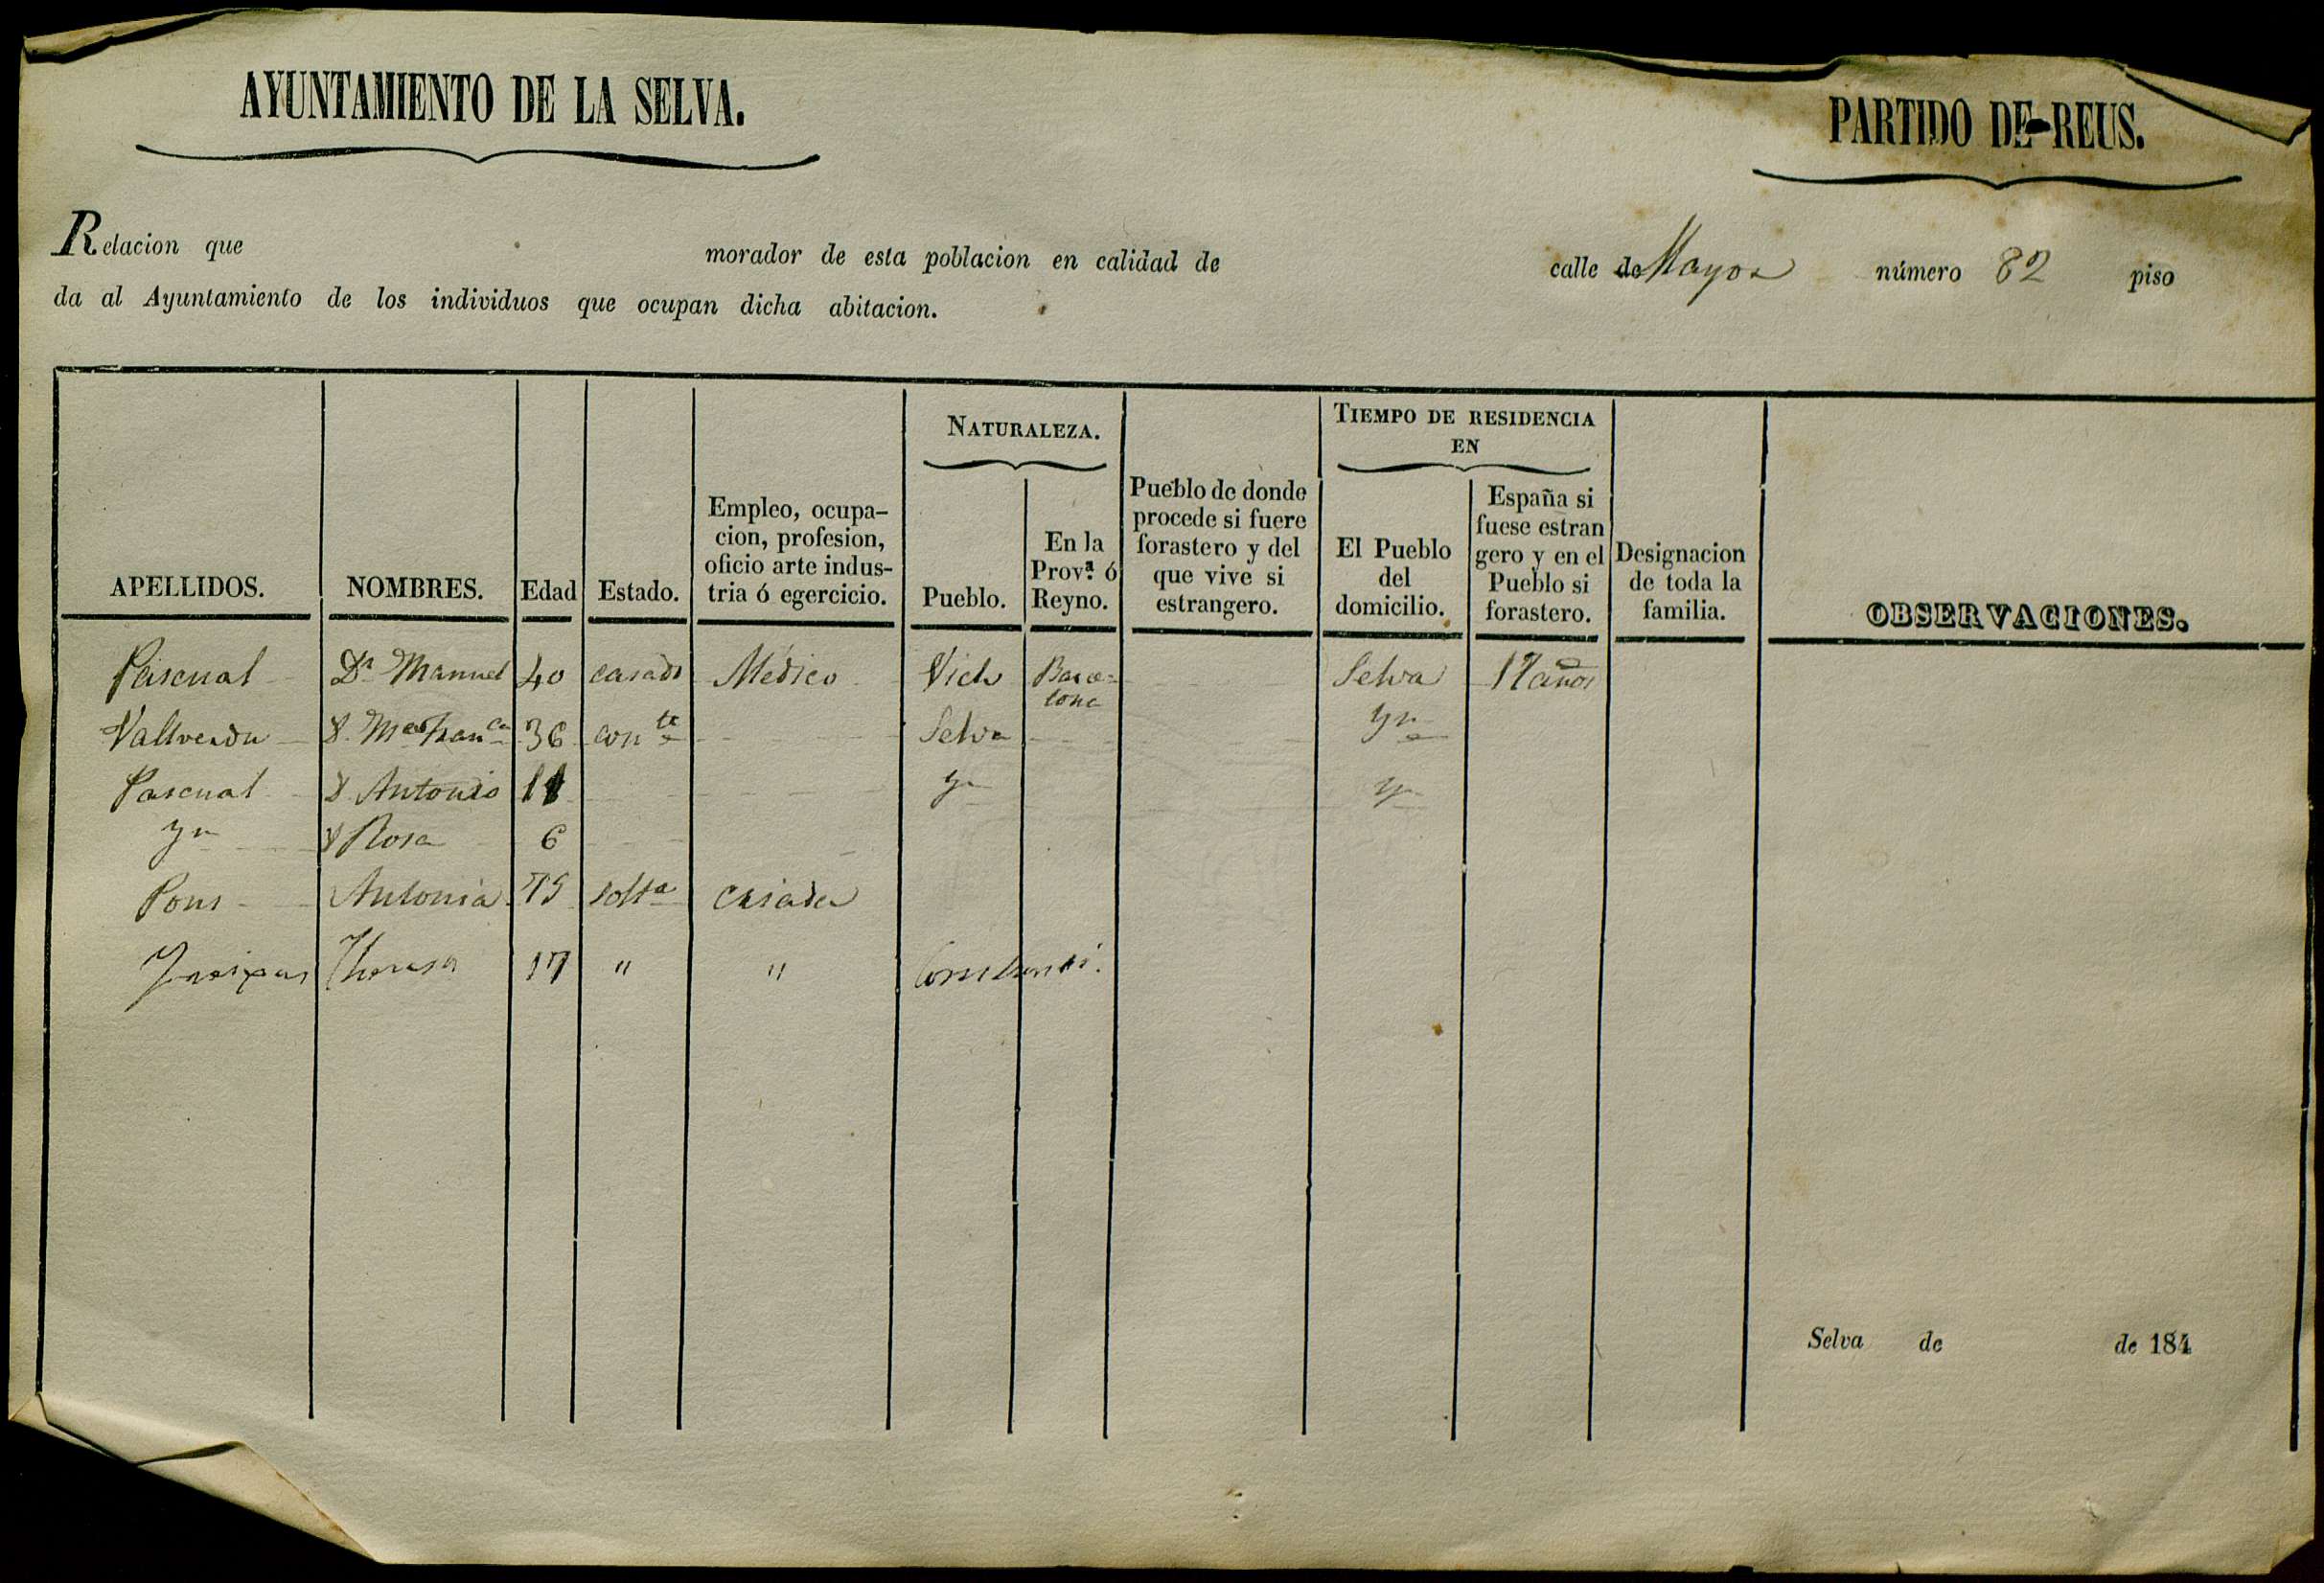 AYUNTAMIENTO DE LA SELVA.
PARTIDO DE REUS.
Relacion que morador de esta poblacion en calidad de calle de Mayor número 82 piso
da al Ayuntamiento de los individuos que ocupan dicha abitacion.
APELLIDOS.
NOMBRES.
Edad
Estado.
Empleo, ocupa-
cion, profesion,
oficio arte indus-
tria ó egercicio.
NATURALEZA.
Pueblo.
En la
Prov.ª ó
Reyno.
Pueblo de donde
procede si fuere
forastero y del
que vive si
estrangero.
TIEMPO DE RESIDENCIA
EN
El Pueblo
del
domicilio.
España si
fuese estran
gero y en el
Pueblo si
forastero.
Designacion
de toda la
familia.
OBSERVACIONES.
Pascual Dn Manuel 40 casado Medico Vich Barce-
lona Selva 17 años
Vallverdu Ma Franca 36 conte Selva Yn
Pascual Antonio 11 Yn Yn
Yn Rosa 6
Pons Antonia solta criada
Theresa 17 " " Constanti.
Selva de de 184